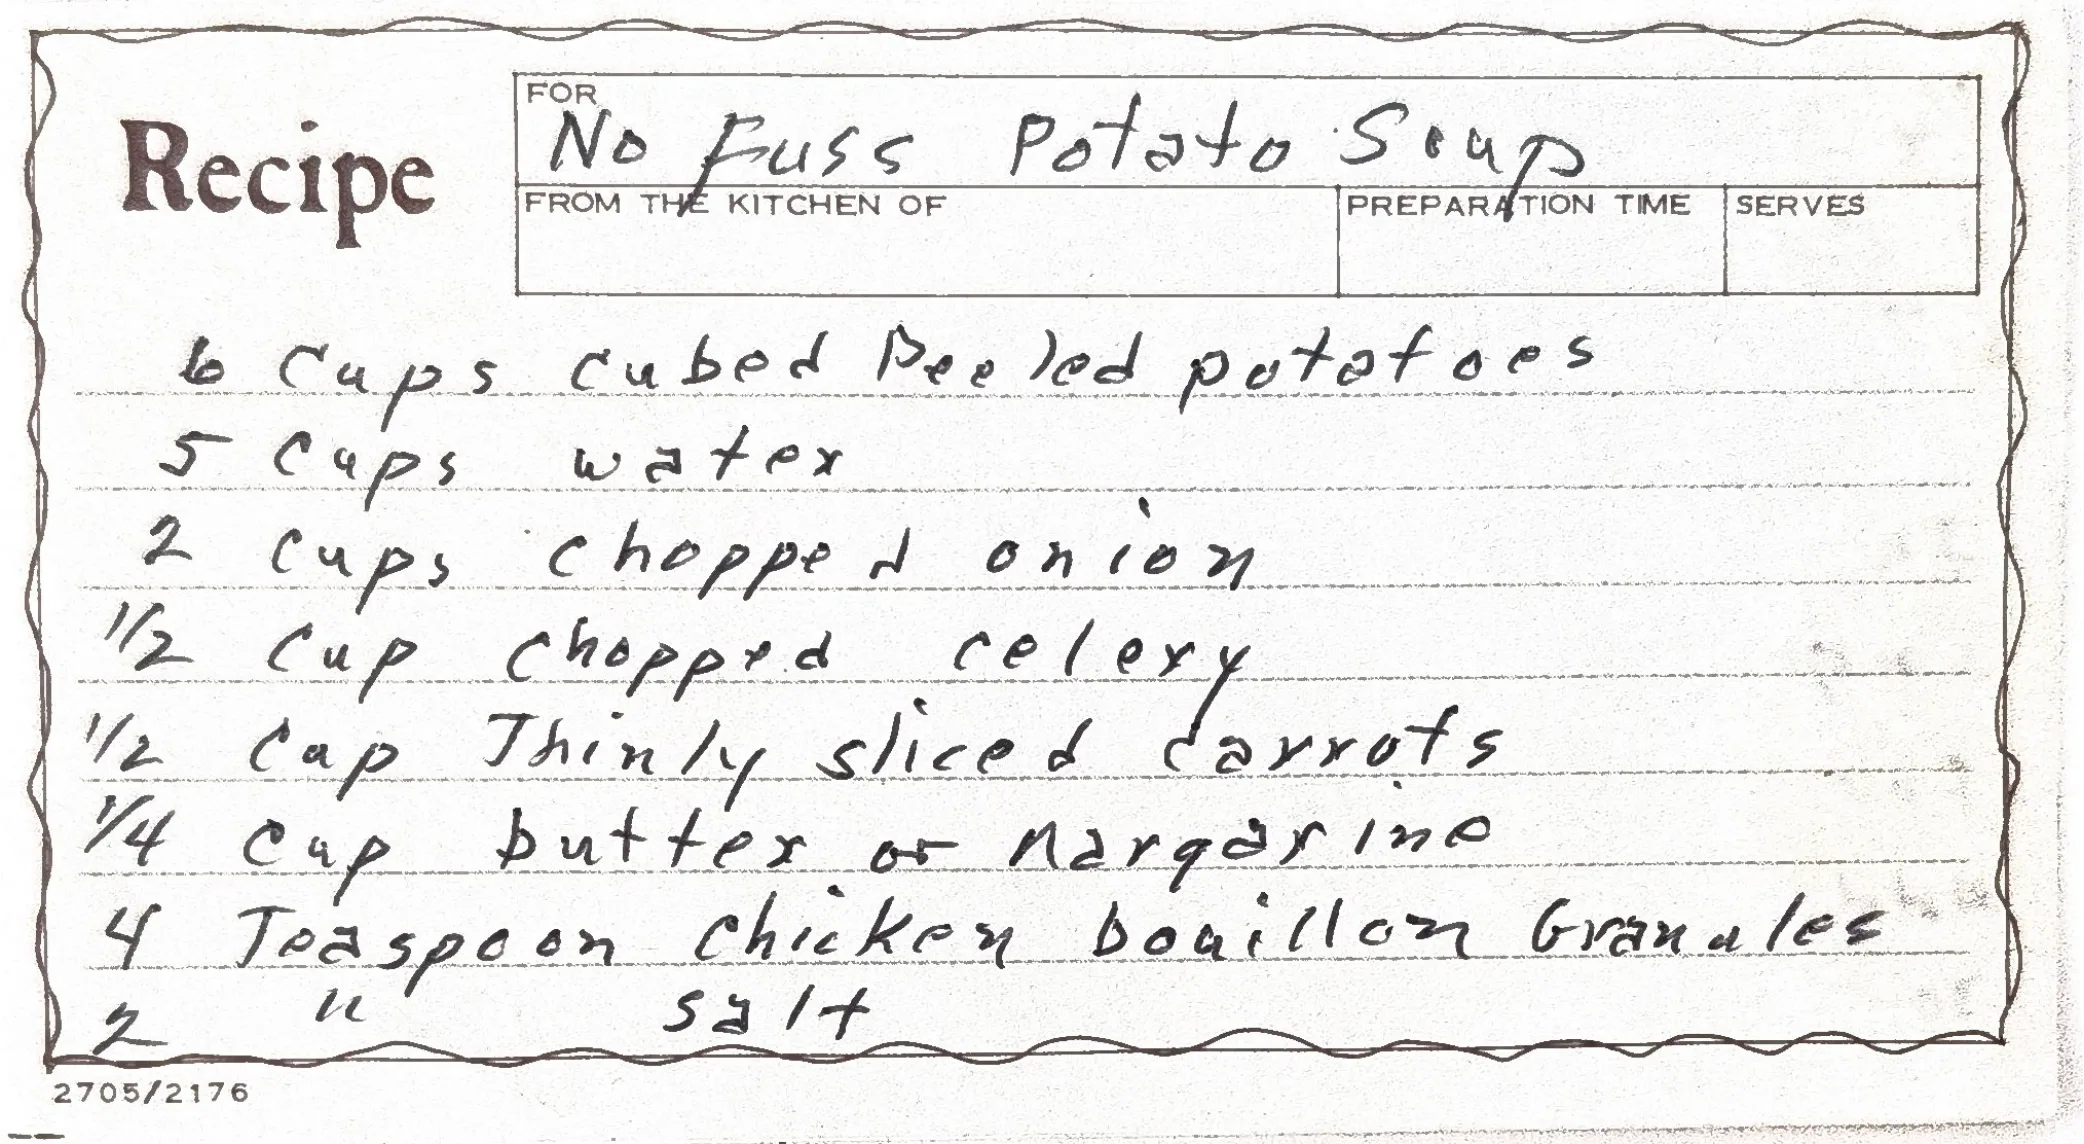 Recipe
FOR
No Fuss Potato Soup
FROM THE KITCHEN OF
PREPARATION TIME
SERVES
6 Cups cubed Peeled potatoes
5 Cups water
2 Cups chopped onion
1/2 Cup chopped celery
1/2 Cup Thinly sliced carrots
1/4 Cup butter or Margarine
4 Teaspoon chicken bouillon Granules
2 " salt
2705/2176